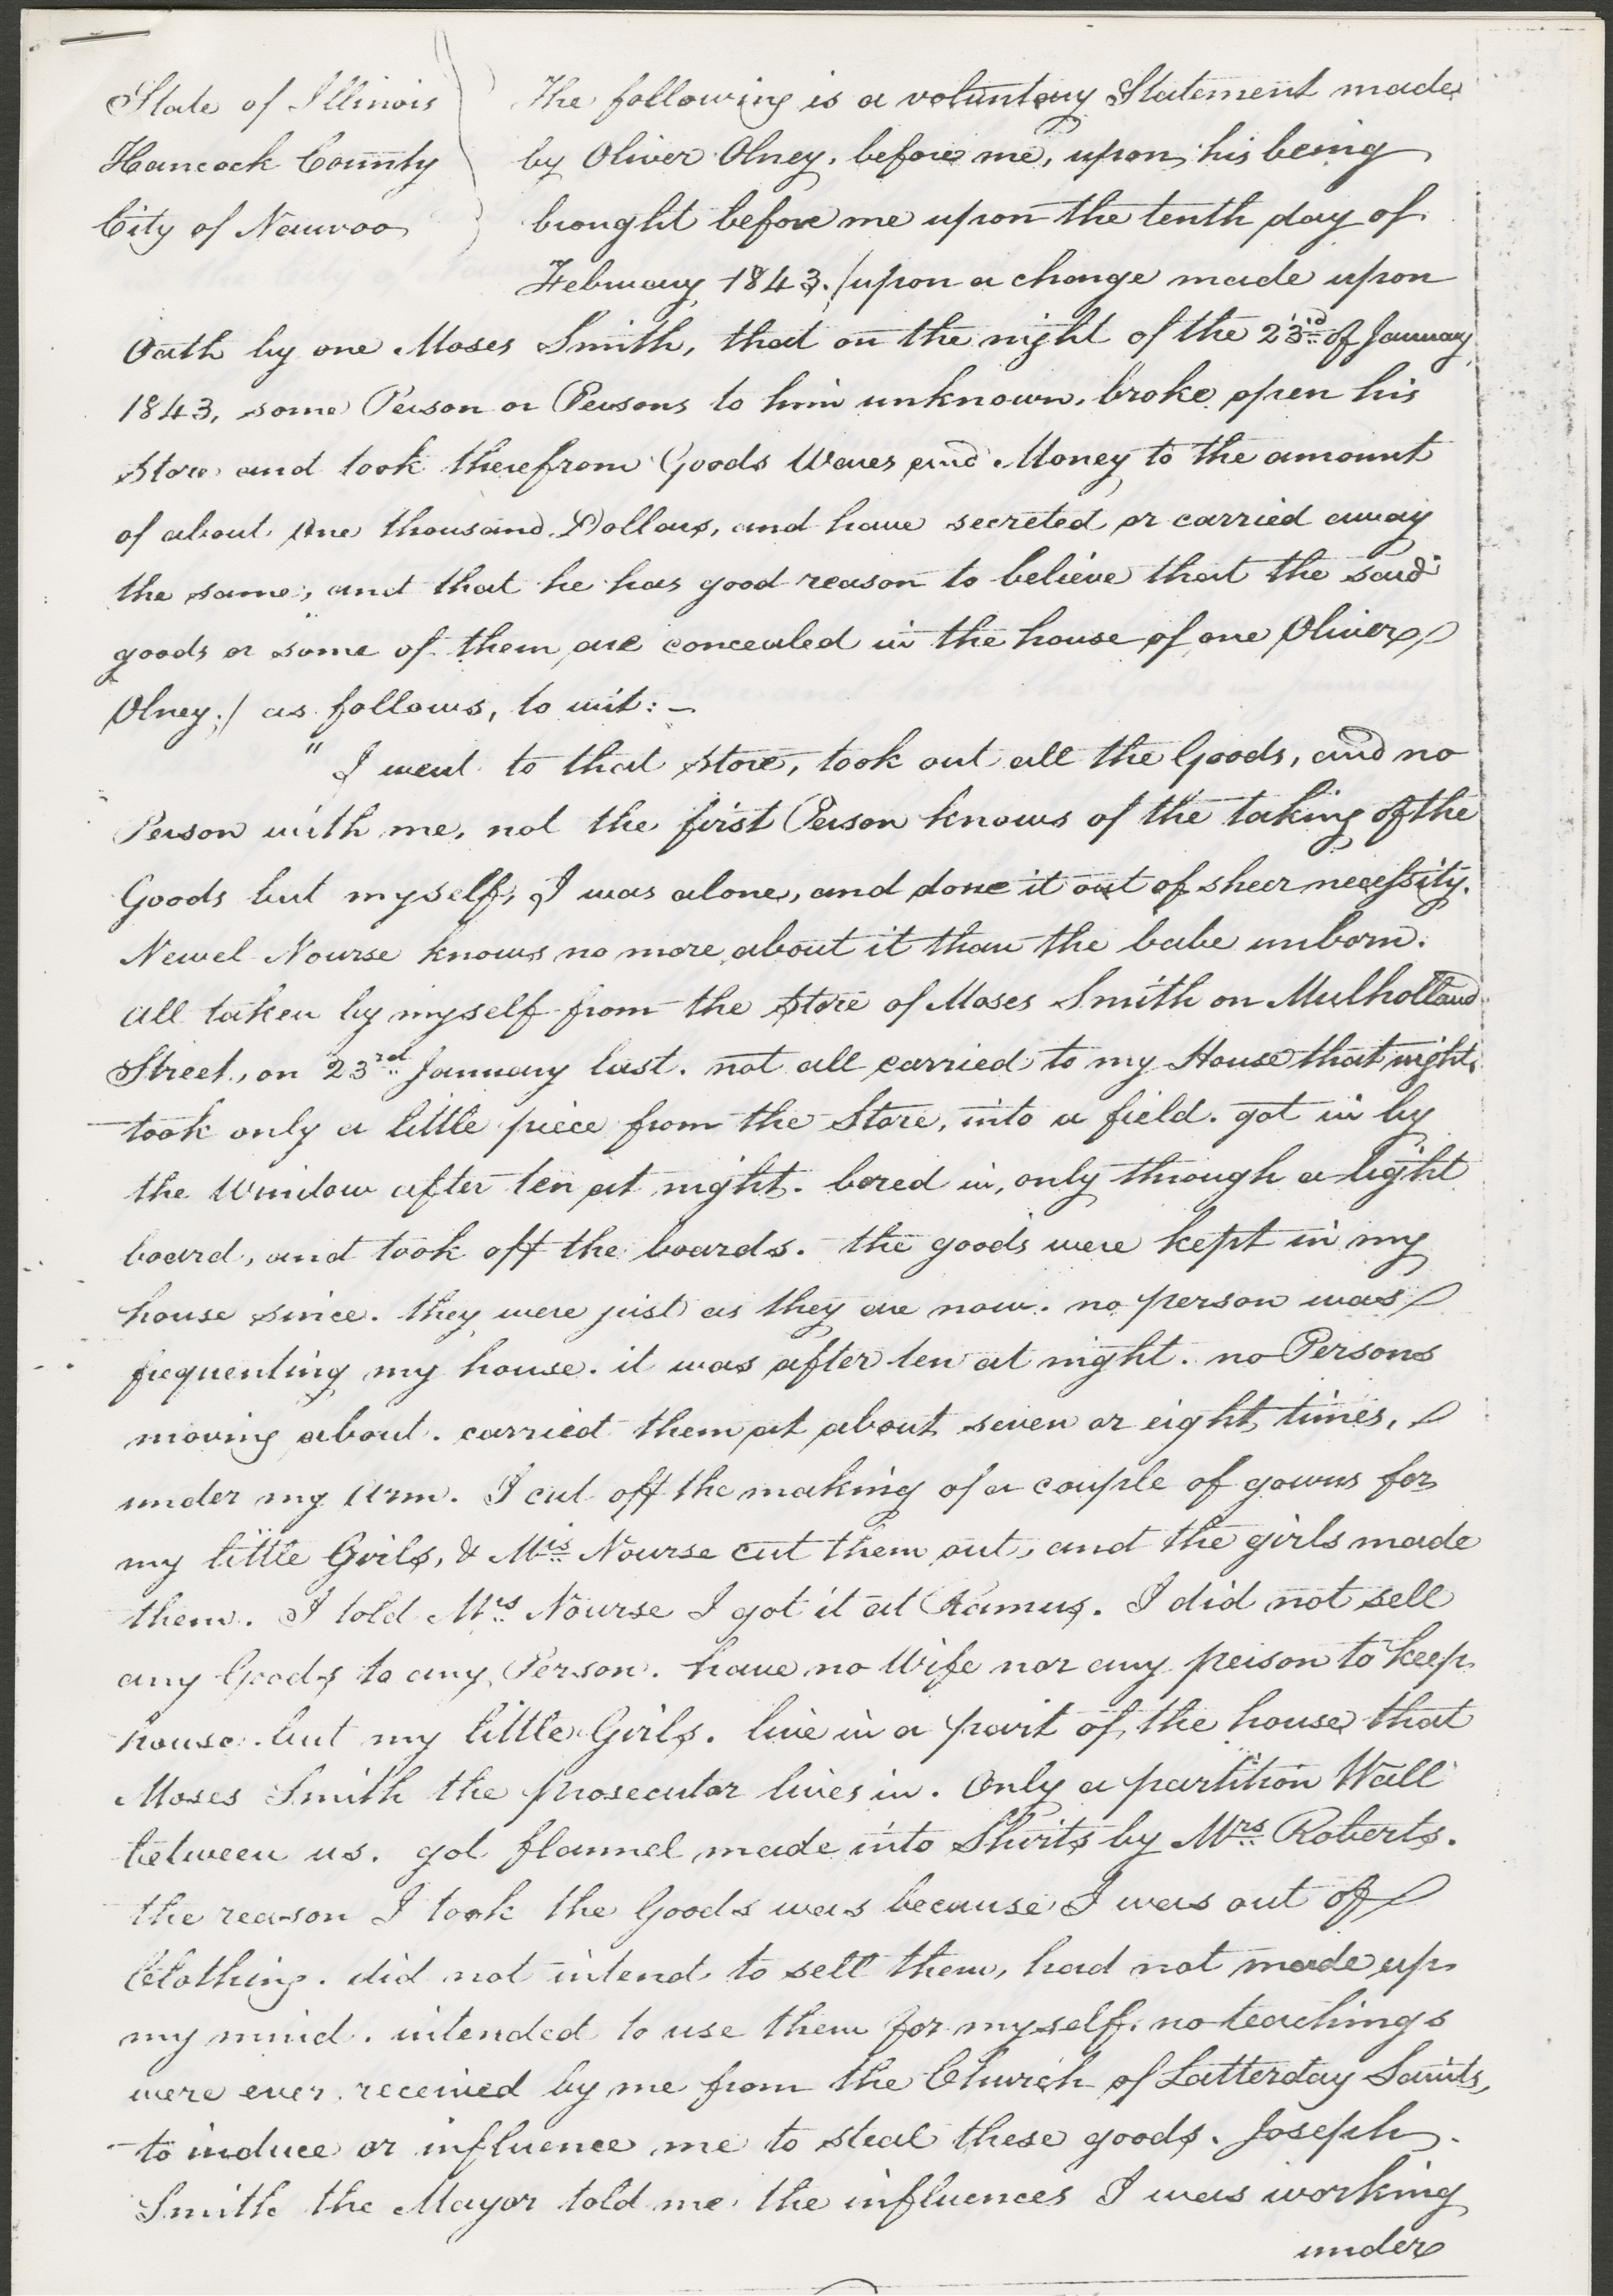 State of Illinois
Hancock County
City of Nauvoo
The following is a voluntary Statement made
by Oliver Olney, before me, upon his being
brought before me upon the tenth day of
February 1843. /upon a charge made upon
Oath by one Moses Smith, that on the night of the 23rd of January
1843, some Person or Persons to him unknown, broke open his
Store and took therefrom Goods Wares and Money to the amount
of about One thousand Dollars, and have secreted or carried away
the same; and that he has good reason to believe that the said
goods or some of them are concealed in the house of one Oliver
Olney./ as follows, to wit: –
" I went to that Store, took out all the Goods, and no
Person with me, not the first Person knows of the taking of the
Goods but myself, I was alone, and done it out of sheer necessity.
Newel Nourse knows no more about it than the babe unborn.
all taken by myself from the Store of Moses Smith on Mulholland
Street, on 23rd January last. not all carried to my House that night,
took only a little piece from the Store, into a field. got in by
the Window after ten at night. bored in, only through a light
board, and took off the boards. the goods were kept in my
house since. they were just as they are now. no person was
frequenting my house. it was after ten at night. no Persons
moving about. carried them at about seven or eight times,
under my Arm. I cut off the making of a couple of gowns for
my little Girls, & Mrs Nourse cut them out, and the girls made
them. I told Mrs Nourse I got it at Ramus. I did not sell
any Goods to any Person. have no Wife nor any person to keep
house but my little Girls. live in a part of the house that
Moses Smith the prosecutor lives in. Only a partition Wall
between us. got flannel made into Shirts by Mrs Roberts.
the reason I took the Goods was because I was out of
Clothing. did not intend to sell them, had not made up
my mind. intended to use them for myself. no teachings
were ever received by me from the Church of Latterday Saints,
to induce or influence me to steal these goods. Joseph
Smith the Mayor told me the influences I was working
under